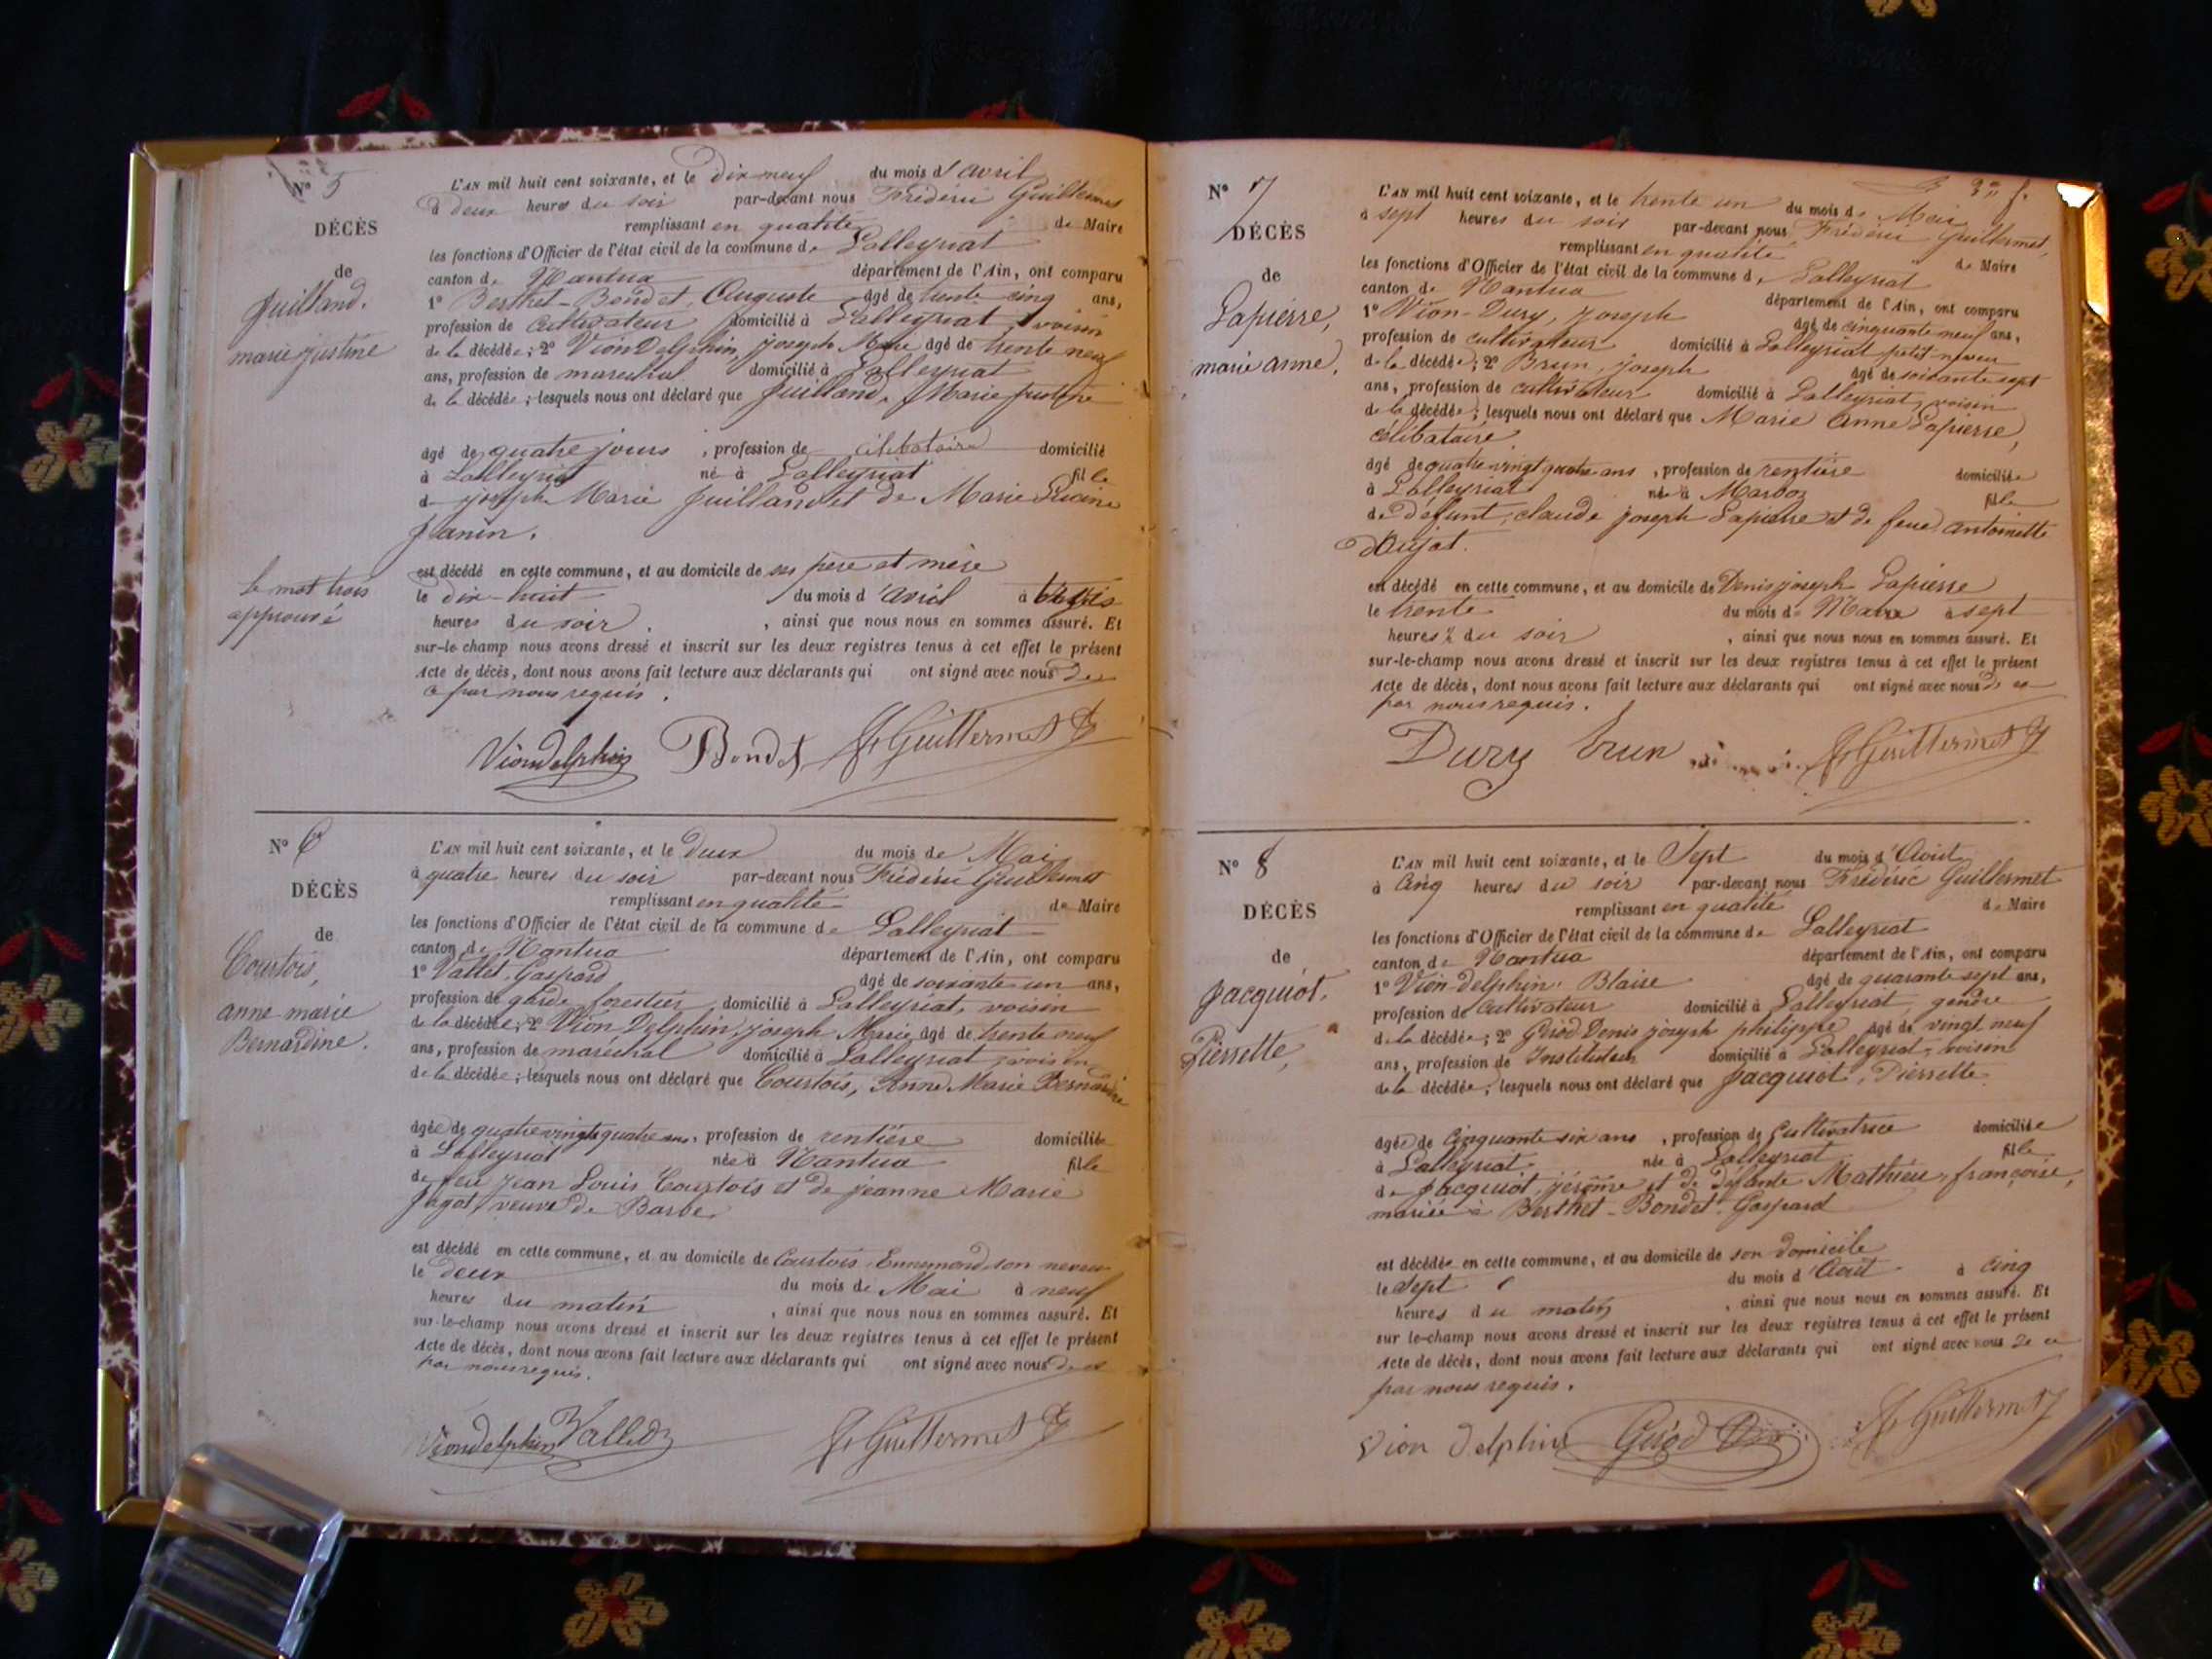 N° 5
DÉCÈS
de
Juilland.
marie justine
L'AN mil huit cent soixante, et le Dix neuf du mois d'avril
à deux heures du soir par-devant nous Frédéric Guillermet
remplissant en qualité de Maire
les fonctions d'Officier de l'état civil de la commune de Lalleyriat
canton de Nantua département de l'Ain, ont comparu
1° Berthet-Bondet, Auguste âgé de trente cinq ans,
profession de Cultivateur domicilié à Lalleyriat, voisin
de la décédée; 2° Vion Delphin, joseph Marie âgé de trente neuf
ans, profession de marechal domicilié à Lalleyriat
de la décédée; lesquels nous ont déclaré que Juilland, Marie Justine
âgé de quatre jours, profession de célibataire domicilié
à Lalleyriat né à Lalleyriat fille
de joseph Marie Juilland et de Marie Lucine
Janin.
est décédé en cette commune, et au domicile de ses père et mère
le dix-huit du mois d'avril à trois
heures du soir, ainsi que nous nous en sommes assuré. Et
sur-le-champ nous avons dressé et inscrit sur les deux registres tenus à cet effet le présent
Acte de décès, dont nous avons fait lecture aux déclarants qui ont signé avec nous de
ce par nous requis.
le mot trois
approuvé
Viondelphin Bondet F. Guillermet
N° 6
DÉCÈS
de
Courtois,
anne marie
Bernardine.
L'AN mil huit cent soixante, et le Deux du mois de Mai
à quatre heures du soir par-devant nous Frédéric Guillermet
remplissant en qualité de Maire
les fonctions d'Officier de l'état civil de la commune de Lalleyriat
canton de Nantua département de l'Ain, ont comparu
1° Vallet, Gaspard âgé de soixante un ans,
profession de garde forestier domicilié à Lalleyriat, voisin
de la décédée; 2° Vion Delphin, joseph Marie âgé de trente neuf
ans, profession de maréchal domicilié à Lalleyriat, voisin
de la décédée; lesquels nous ont déclaré que Courtois, Anne Marie Bernardine
âgée de quatre vingts quatre ans, profession de rentière domiciliée
à Lalleyriat née à Nantua fille
de feu Jean Louis Courtois et de jeanne Marie
Jagot, veuve de Barbe
est décédé en cette commune, et au domicile de Courtois, Ennemond, son neveu
le deux du mois de Mai à neuf
heures du matin, ainsi que nous nous en sommes assuré. Et
sur-le-champ nous avons dressé et inscrit sur les deux registres tenus à cet effet le présent
Acte de décès, dont nous avons fait lecture aux déclarants qui ont signé avec nous de ce
par nous requis.
Viondelphin Vallet F. Guillermet
N° 7
DÉCÈS
de
Lapierre,
marie anne.
L'AN mil huit cent soixante, et le trente un du mois de Mai
à sept heures du soir par-devant nous Frédéric Guillermet,
remplissant en qualité de Maire
les fonctions d'Officier de l'état civil de la commune de Lalleyriat
canton de Nantua département de l'Ain, ont comparu
1° Vion-Dury, joseph âgé de cinquante neuf ans,
profession de cultivateur domicilié à Lalleyriat petit-neveu
de la décédée; 2° Brun, joseph âgé de soixante sept
ans, profession de cultivateur domicilié à Lalleyriat, voisin
de la décédée; lesquels nous ont déclaré que Marie Anne Lapierre,
célibataire
âgé de quatre vingt quatre ans, profession de rentière domiciliée
à Lalleyriat née à Marboz fille
de défunt, claude joseph Lapierre et de feue antoinette
Doujat.
est décédé en cette commune, et au domicile de Denis joseph Lapierre
le trente du mois de Mai à sept
heures ½ du soir, ainsi que nous nous en sommes assuré. Et
sur-le-champ nous avons dressé et inscrit sur les deux registres tenus à cet effet le présent
Acte de décès, dont nous avons fait lecture aux déclarants qui ont signé avec nous de ce
par nous requis.
Dury Brun F. Guillermet
N° 8
DÉCÈS
de
Jacquiot,
Pierrette,
L'AN mil huit cent soixante, et le Sept du mois d'Août
à Cinq heures du soir par-devant nous Frédéric Guillermet
remplissant en qualité de Maire
les fonctions d'Officier de l'état civil de la commune de Lalleyriat
canton de Nantua département de l'Ain, ont comparu
1° Vion-delphin, Blaise âgé de quarante sept ans,
profession de Cultivateur domicilié à Lalleyriat, gendre
de la décédée; 2° Girod Denis joseph philippe âgé de vingt neuf
ans, profession de Instituteur domicilié à Lalleyriat, voisin
de la décédée; lesquels nous ont déclaré que Jacquiot, Pierrette
âgée de Cinquante six ans, profession de Cultivatrice domiciliée
à Lalleyriat née à Lalleyriat fille
de Jacquiot, jérôme et de défunte Mathieu, françoise,
mariée à Berthet-Bondet, Gaspard
est décédée en cette commune, et au domicile de son domicile
le Sept du mois d'Août à cinq
heures du matin, ainsi que nous nous en sommes assuré. Et
sur le-champ nous avons dressé et inscrit sur les deux registres tenus à cet effet le présent
Acte de décès, dont nous avons fait lecture aux déclarants qui ont signé avec nous de ce
par nous requis.
Vion delphin Girod F. Guillermet